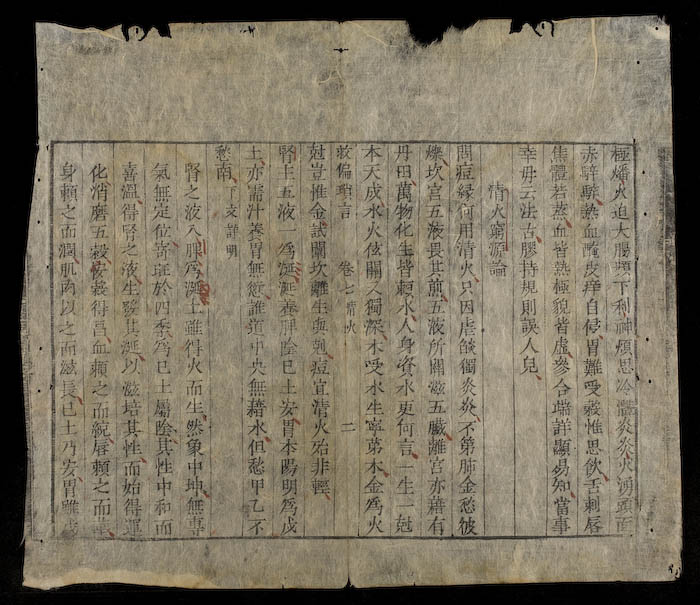 極燔火迫大腸頻下利神煩思冷體炎炎火湧頭面
赤騂騂熱血醃皮痒自停胃難受穀惟思飲舌刺唇
焦體若蒸血皆熱極貌皆虛參合端詳顯易知當事
幸毋云法古膠持規則誤人兒
清火窮源論
問症緣何用清火只因虐燄獨炎炎不第肺金愁彼
爍坎宮五液畏其煎五液所關滋五臟離宮亦藉有
丹田萬物化生皆賴水人身資水更何言一生一尅
本天成水火佽關又獨深木受水生寧第木金爲火
救偏瑣言
卷七清火
二
尅豈推金試闡坎離生與剋痘宜清火始非輕
腎主五液一爲涎涎養脾陰巳土安胃本陽明爲戊
土亦需汁養胃無愆誰道中央無藉水但愁甲乙不
愁南
下文詳明
腎之液入脾爲涎土雖得火而生然象中坤無專
氣無定位寄旺於四季爲巳土屬陰其性中和而
喜溫得腎之液生發其涎以滋培其性而始得運
化消磨五穀安義得昌血賴之而統唇賴之而華
身賴之而潤肌肉以之而滋長巳土乃安胃雖戊